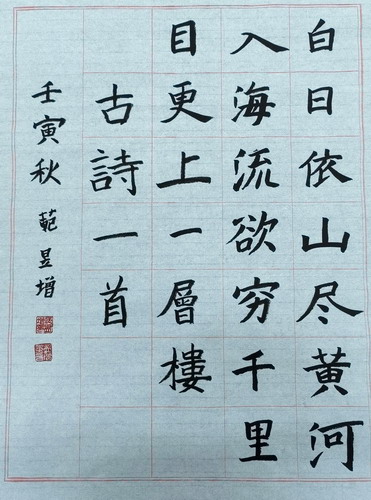 白日依山尽黄河
入海流欲穷千里
目更上一層樓
古詩一首
壬寅秋 范昱增